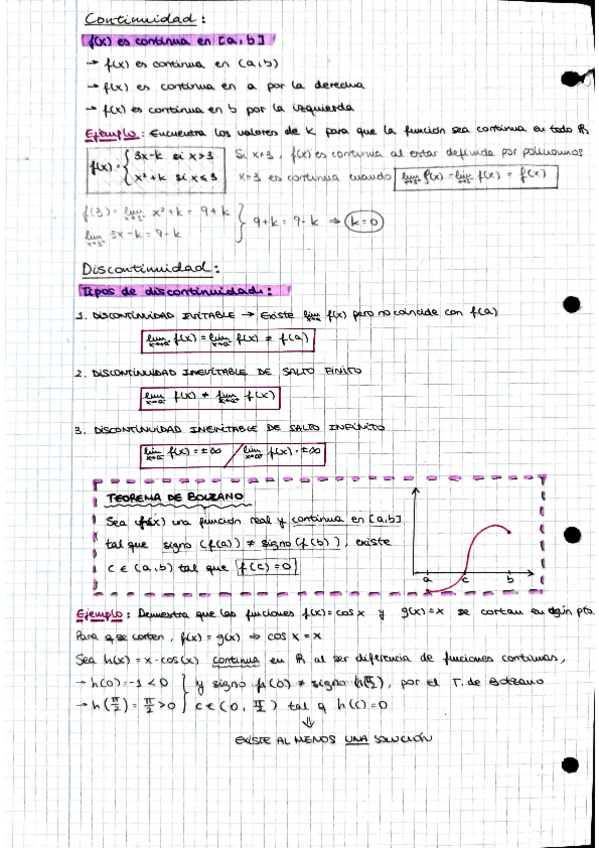 Continuidad:
f(x) es continua en [a, b]
→ f(x) es continua en (a, b)
→ f(x) es continua en a por la derecha
→ f(x) es continua en b por la izquierda
Ejemplo: Encuentra los valores de k para que la función sea continua en todo ℝ
f(x) = { 3x-k si x>3
x²+k si x≤3
Si x≠3, f(x) es continua al estar definida por polinomios
x=3 es continua cuando lim x→3⁺ f(x) = lim x→3⁻ f(x) = f(x)
f(3) = lim x→3⁻ x²+k = 9+k
lim x→3⁺ 3x-k = 9-k
} 9+k = 9-k ⇒ k=0
Discontinuidad:
Tipos de discontinuidad:
1. DISCONTINUIDAD EVITABLE → Existe lim x→a f(x) pero no coincide con f(a)
lim x→a⁺ f(x) = lim x→a⁻ f(x) ≠ f(a)
2. DISCONTINUIDAD INEVITABLE DE SALTO FINITO
lim x→a⁺ f(x) ≠ lim x→a⁻ f(x)
3. DISCONTINUIDAD INEVITABLE DE SALTO INFINITO
f(x) = ±∞ / f(x) = ±∞
TEOREMA DE BOLZANO
Sea f(x) una función real y continua en [a,b]
tal que signo (f(a)) ≠ signo (f(b)), existe
c ∈ (a, b) tal que f(c) = 0
a c b
Ejemplo: Demuestra que las funciones f(x) = cos x y g(x) = x se cortan en algún pto.
Para q se corten, f(x) = g(x) ⇒ cos x = x
Sea h(x) = x - cos(x) continua en ℝ al ser diferencia de funciones continuas,
→ h(0) = -1 < 0
→ h(π/2) = π/2 > 0
} y signo h(0) ≠ signo h(π/2), por el T. de Bolzano
c ∈ (0, π/2) tal q h(c) = 0
⇓
EXISTE AL MENOS UNA SOLUCIÓN